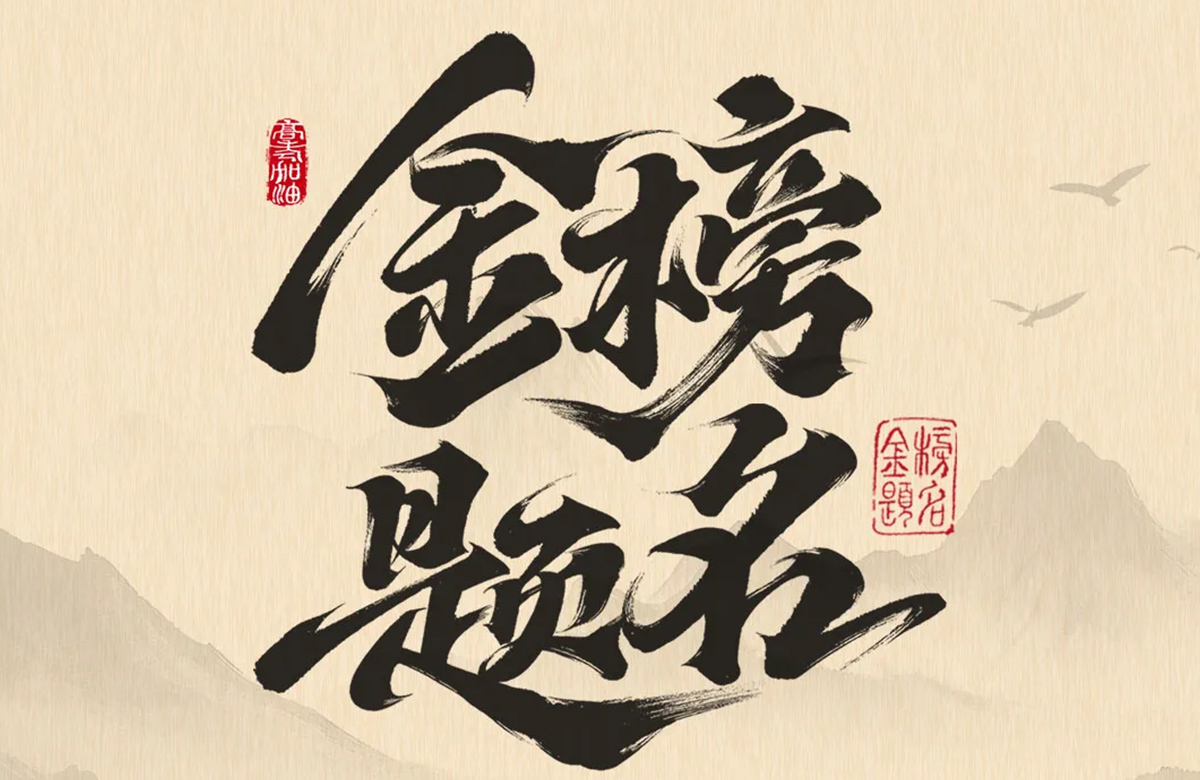 高考加油
金榜
题名
金榜
題名